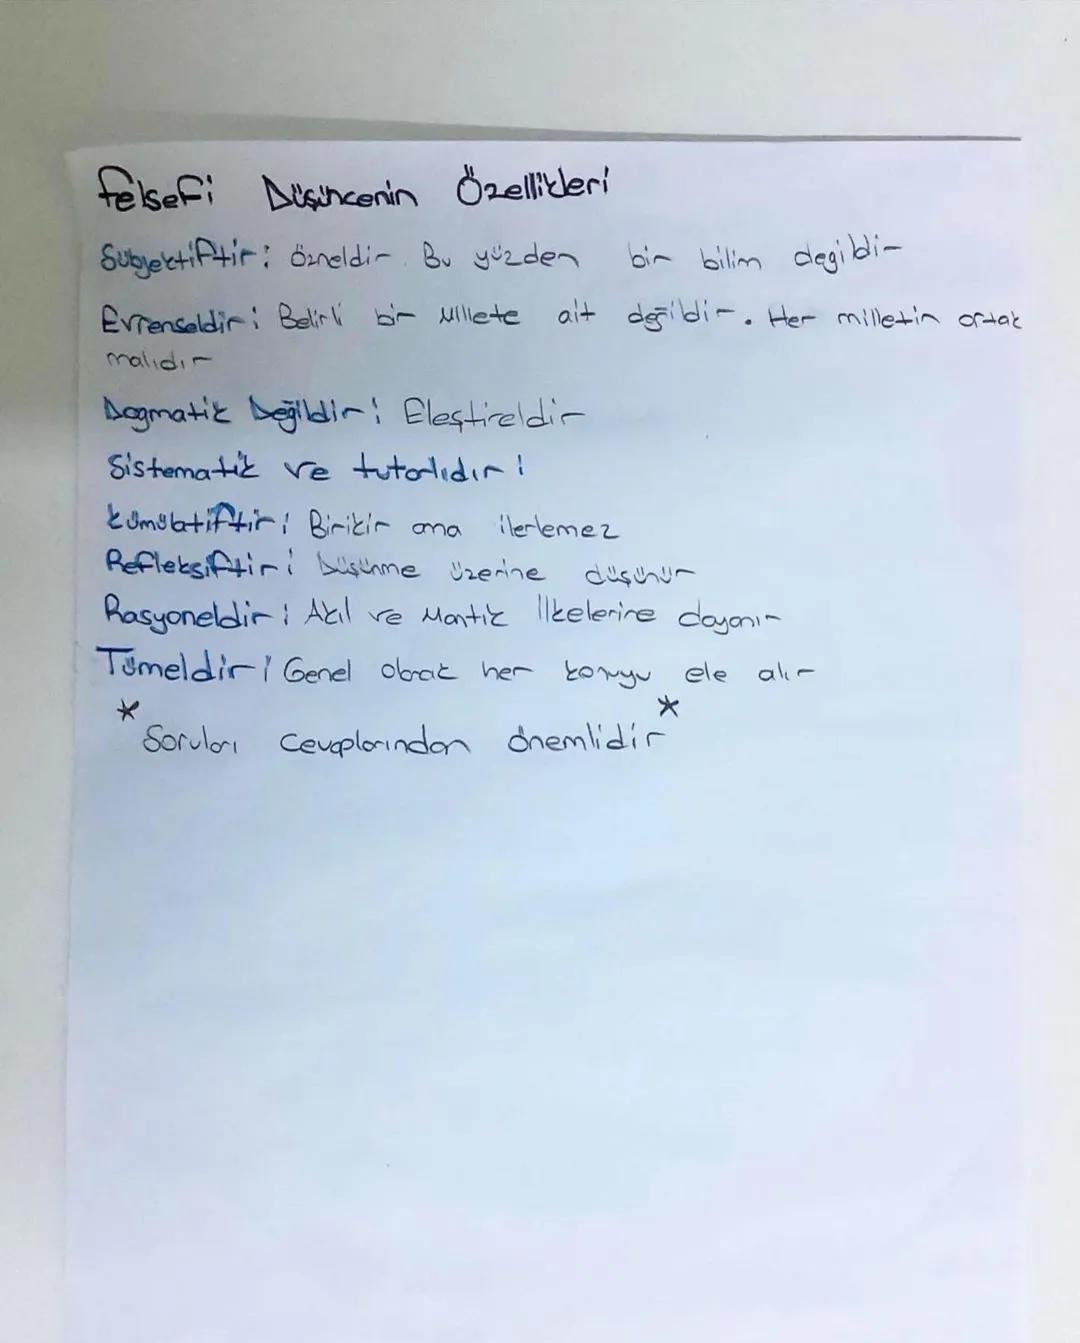 Felsefi Düşüncenin Özellikleri
Subjektiftir: özneldir. Bu yüzden bir bilim degildir
Evrenseldir: Belirli bir Millete ait değildir. Her milletin ortak
malıdır
Dogmatik Değildir: Eleştireldir
Sistematik ve tutarlıdır:
Kümülatiftir: Birikir ama ilerlemez
Refleksiftir: Düşünme üzerine düşünür
Rasyoneldir: Akıl ve Mantık İlkelerine dayanır
Tümeldir: Genel olarak her konuyu ele alır
* *
Soruları cevaplarından önemlidir